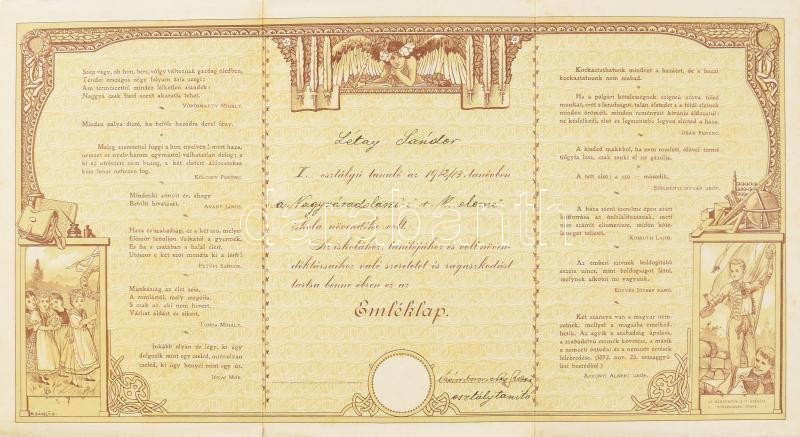 Szép vagy, oh hon, bérc, völgy változnak gazdag öledben,
Téridet országos négy folyam árja szegi;
Ám természettől mindez lélketlen ajándék:
Naggyá csak fiaid szent akaratja tehet.
VÖRÖSMARTY MIHÁLY.
Minden pálya dicső, ha belőle hazádra derül fény.
Meleg szeretettel függj a hon nyelvén! mert haza,
nemzet és nyelv három egymástól válhatatlan dolog; s
ki az utolsóért nem buzog, a két elsőért áldozatokra
kész lenni nehezen fog.
KÖLCSEY FERENC.
Mindenki annyit ér, ahogy
Betölti hivatását.
ARANY JÁNOS.
Haza és szabadság, ez a két szó, melyet
Először tanuljon dajkától a gyermek,
És ha a csatában a halál eléri,
Utószor e két szót mondja ki a férfi!
PETŐFI SÁNDOR.
Munkásság az élet sója,
A romlástól mely megója,
S csak az, aki nem hevert,
Várhat áldást és sikert.
TOMPA MIHÁLY.
Inkább olyan úr légy, ki úgy
dolgozik mint egy cseléd, mintsem olyan
cseléd, ki úgy henyél mint egy úr.
JÓKAI MÓR.
Létay Sándor
I. osztályú tanuló az 1912/13. tanévben
a Nagyváradolaszi i r. k. elemi
iskola növendéke volt.
Az iskolához, tanítójához és volt növen-
déktársaihoz való szeretetet és ragaszkodást
tartsa benne ébren ez az
Emléklap.
osztálytanító
Kockáztathatunk mindent a hazáért, de a hazát
kockáztatnunk nem szabad.
Ha a polgári kötelességnek szigorú szava föléd
munkát, erőt s fáradságot, talán életedet s a földi életnek
minden örömeit, minden reményeit kívánja áldozatúl:
ne késlekedjél, első és legszentebb legyen előtted a haza.
DEÁK FERENC.
A kisded makkból, ha nem romlott, idővel termő
tölgyfa lesz, csak senki el ne gázolja.
A tett első; a szó — második.
SZÉCHENYI ISTVÁN GRÓF.
A haza szent szerelme épen azért
KOSSUTH LAJOS.
Az emberi szívnek boldogítóbb
érzete nincs, mint boldogságot látni,
melynek alkotói mi vagyunk.
EÖTVÖS JÓZSEF BÁRÓ.
Két szárnya van a magyar nem-
zetnek, mellyel a magasba emelked-
hetik. Az egyik a szabadság ápolása,
a szabadelvű eszmék követése, a másik
a nemzeti öntudat és a nemzeti érzések
felébredése. (1892. nov. 22. országgyű-
lési beszédéből.)
APPONYI ALBERT GRÓF.
darabanth